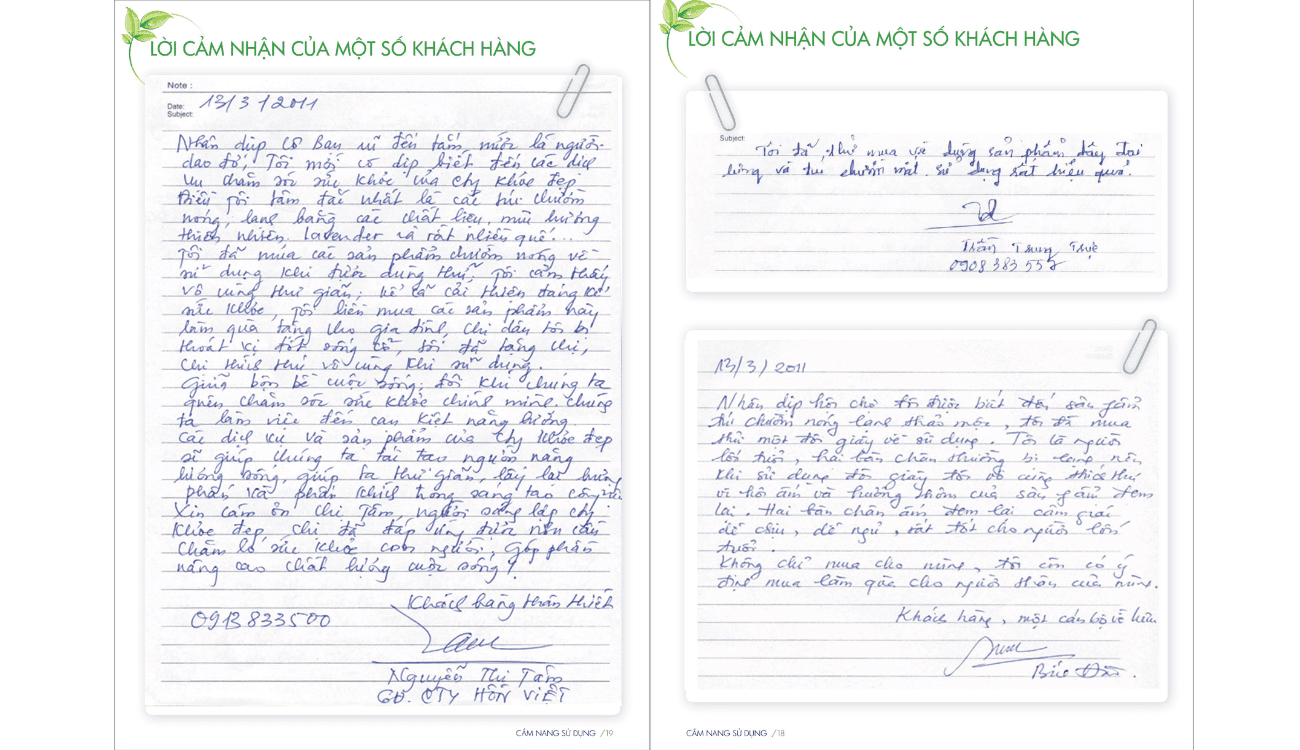 LỜI CẢM NHẬN CỦA MỘT SỐ KHÁCH HÀNG
Note :
Date: 13/3/2011
Subject:
Nhân dịp cô bạn đến tắm, mới là người
dao đỏ, Tôi mới có dịp biết đến các dịch
vụ chăm sóc sức khỏe của Cty Khỏe đẹp
Điều tôi tâm đắc nhất là các túi chườm
nóng, lạnh bằng các chất liệu, mùi hương
thiên nhiên. lavender và rất nhiều quế...
Tôi đã mua các sản phẩm chườm nóng về
sử dụng khi được dùng thử, Tôi cảm thấy
vô cùng thư giãn, kể cả cải thiện đáng kể
sức khỏe, tôi liền mua các sản phẩm này
làm quà tặng cho gia đình, chị dâu tôi bị
thoát vị đốt sống cổ, tôi đã tặng chị,
chị thích thú vô cùng khi sử dụng.
Giữa bộn bề cuộc sống, đôi khi chúng ta
quên chăm sóc sức khỏe chính mình. chúng
ta làm việc đến cạn kiệt năng lượng.
Các dịch vụ và sản phẩm của Cty Khỏe đẹp
sẽ giúp chúng ta tái tạo nguồn năng
lượng sống, giúp ta thư giãn, lấy lại hưng
phấn và phấn khích trong sáng tạo công việc
Xin cảm ơn chị Tâm, người sáng lập cty
Khỏe đẹp, chị đã đáp ứng được nhu cầu
chăm lo sức khỏe con người, góp phần
nâng cao chất lượng cuộc sống!
Khách hàng thân thiết
0913833500
Nguyễn Thị Tâm
GĐ. CTY HỒN VIỆT
CẨM NANG SỬ DỤNG /19
LỜI CẢM NHẬN CỦA MỘT SỐ KHÁCH HÀNG
Subject:
Tôi đã thử mua về dụng sản phẩm đây đai
lưng và túi chườm mát. sử dụng rất hiệu quả.
Trần Trung Trực
0908 383 557
13/3/2011
Nhân dịp hội chợ tôi được biết đến sản phẩm
túi chườm nóng lạnh thảo mộc, tôi đã mua
thử một đôi giày về sử dụng. Tôi là người
lớn tuổi, hai bàn chân thường bị lạnh nên
khi sử dụng đôi giày tôi vô cùng thích thú
vì hơi ấm và hương thơm của sản phẩm đem
lại. Hai bàn chân ấm đem lại cảm giác
dễ chịu, dễ ngủ, rất tốt cho người lớn
tuổi.
Không chỉ mua cho mình, tôi còn có ý
định mua làm quà cho người thân của mình.
Khách hàng, một cán bộ về hưu
CẨM NANG SỬ DỤNG /18